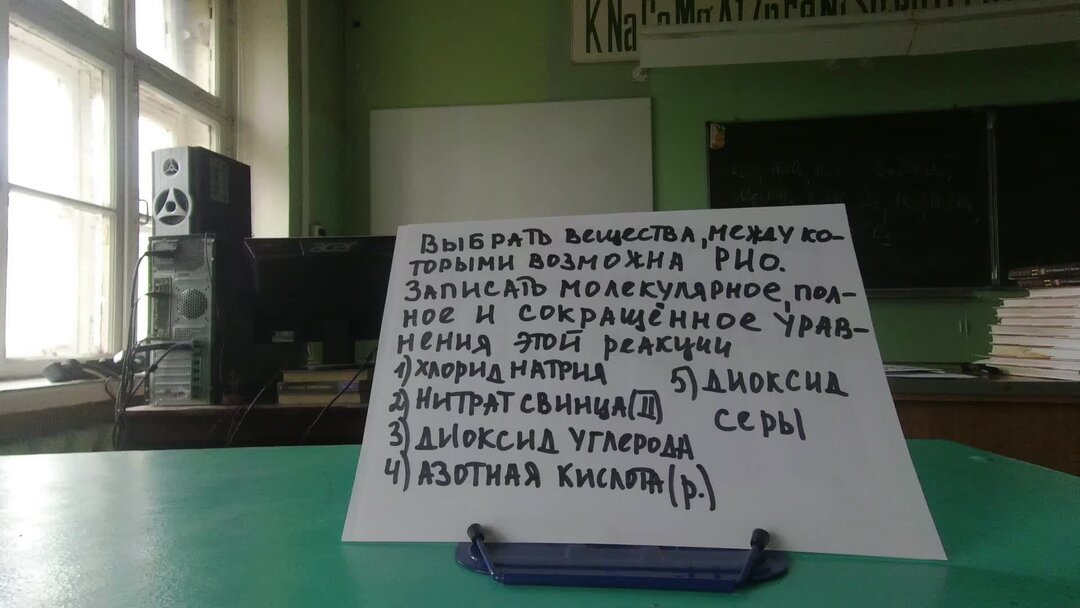 K Na Ca Mg Al Zn
acer
ВЫБРАТЬ ВЕЩЕСТВА, МЕЖДУ КО-
ТОРЫМИ ВОЗМОЖНА РИО.
ЗАПИСАТЬ МОЛЕКУЛЯРНОЕ, ПОЛ-
НОЕ И СОКРАЩЁННОЕ УРАВ-
НЕНИЯ ЭТОЙ РЕАКЦИИ
1) ХЛОРИД НАТРИЯ
2) НИТРАТ СВИНЦА (II)
3) ДИОКСИД УГЛЕРОДА
4) АЗОТНАЯ КИСЛОТА (р.)
5) ДИОКСИД
СЕРЫ